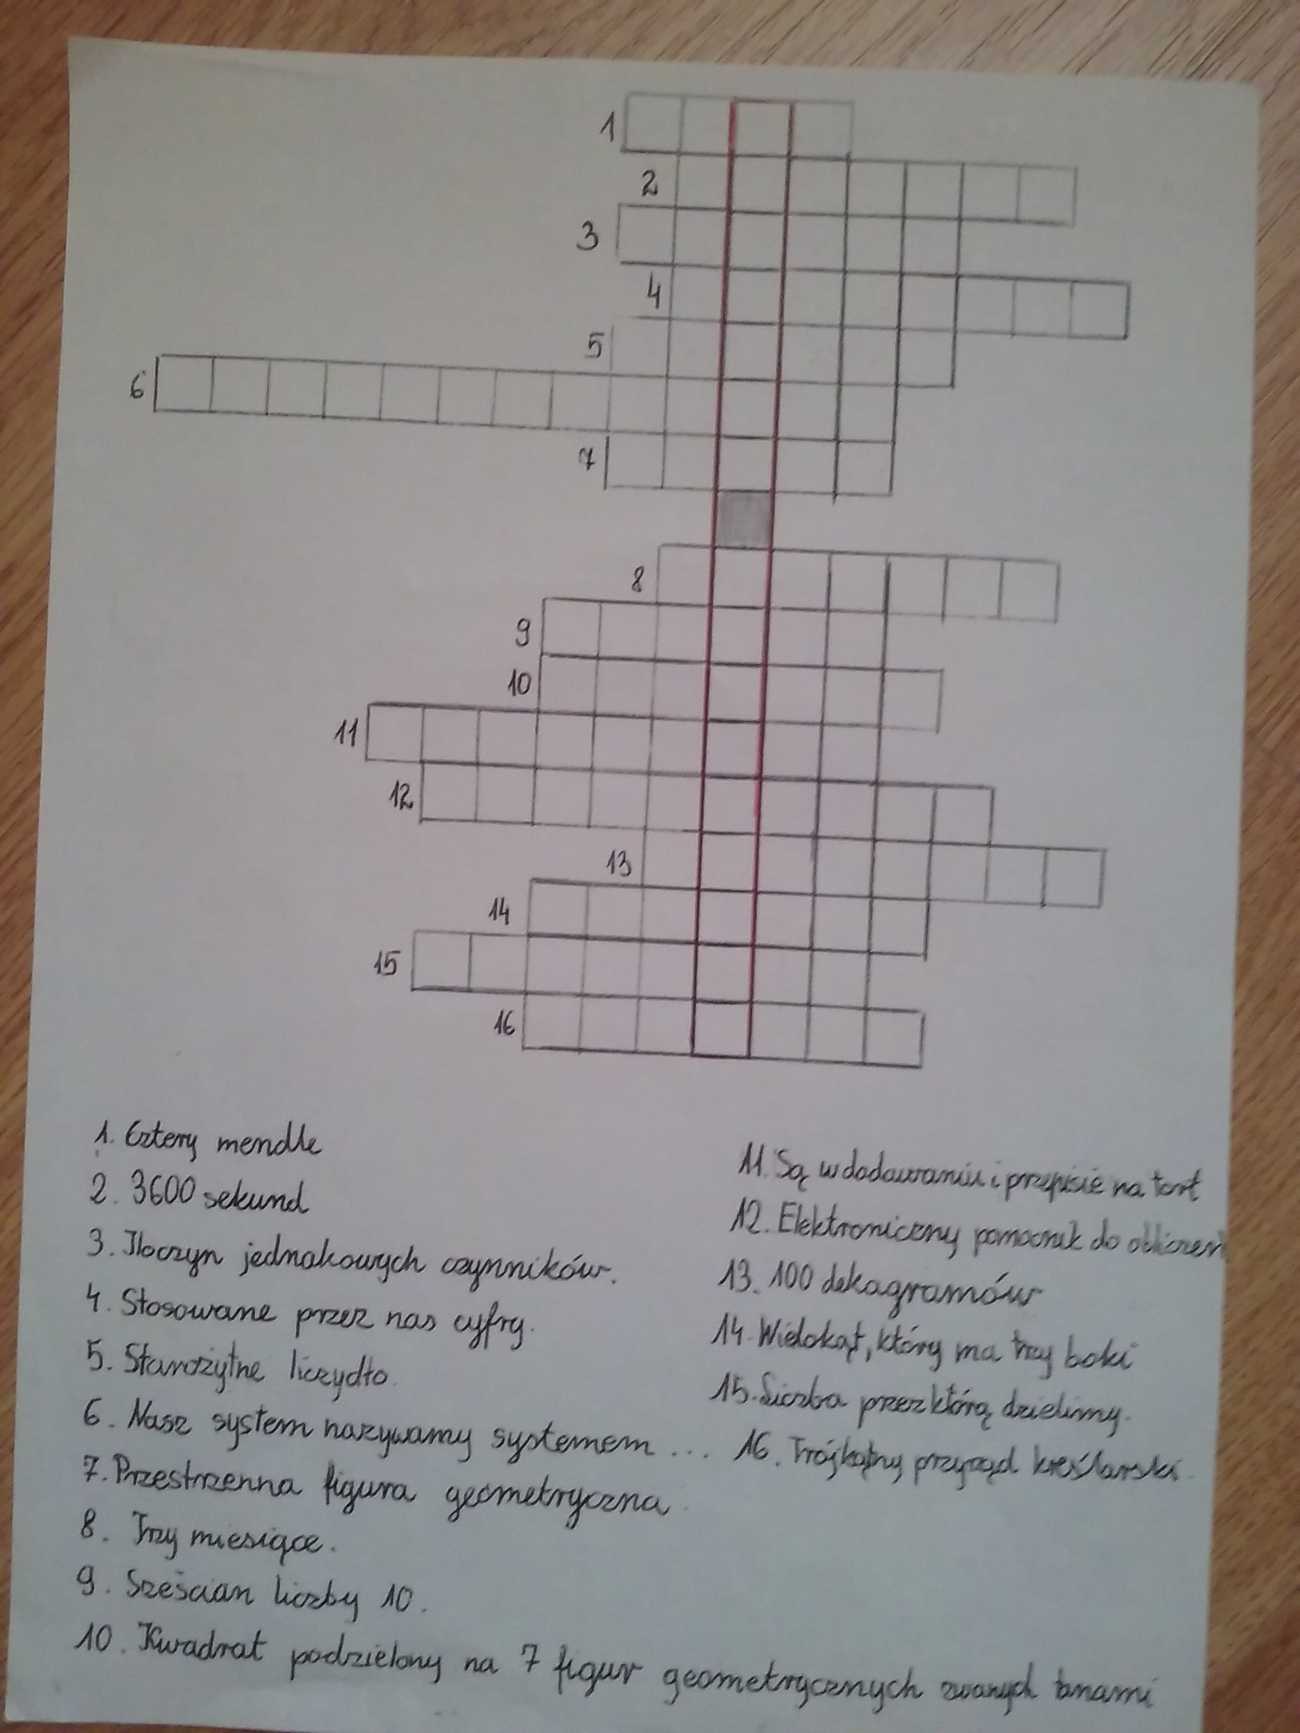 1
2
3
4
5
6
7
8
9
10
11
12
13
14
15
16
1. Cztery mendle
2. 3600 sekund
3. Iloczyn jednakowych czynników.
4. Stosowane przez nas cyfry.
5. Starożytne liczydło.
6. Nasz system nazywamy systemem ...
7. Przestrzenna figura geometryczna.
8. Trzy miesiące.
9. Sześcian liczby 10.
10. Kwadrat podzielony na 7 figur geometrycznych zwanych tanami
11. Są w dodawaniu i przepisie na tort
12. Elektroniczny pomocnik do obliczeń
13. 100 dekagramów
14. Wielokąt, który ma trzy boki
15. Liczba przez którą dzielimy.
16. Trójkątny przyrząd kreślarski.